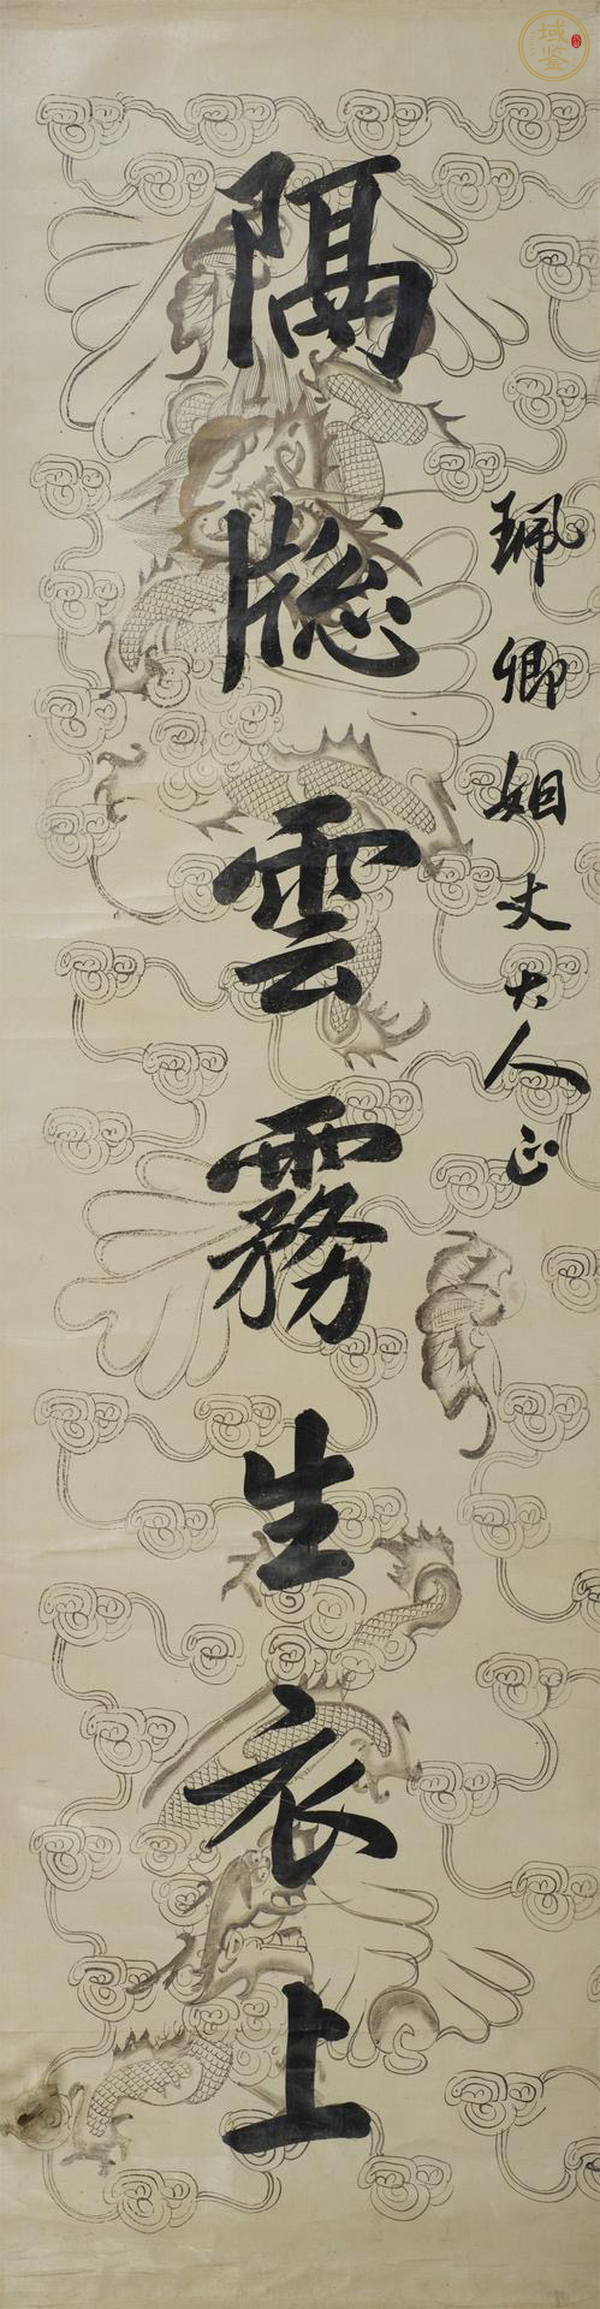 珮卿姻丈大人正
隔牕雲霧生衣上
域鉴